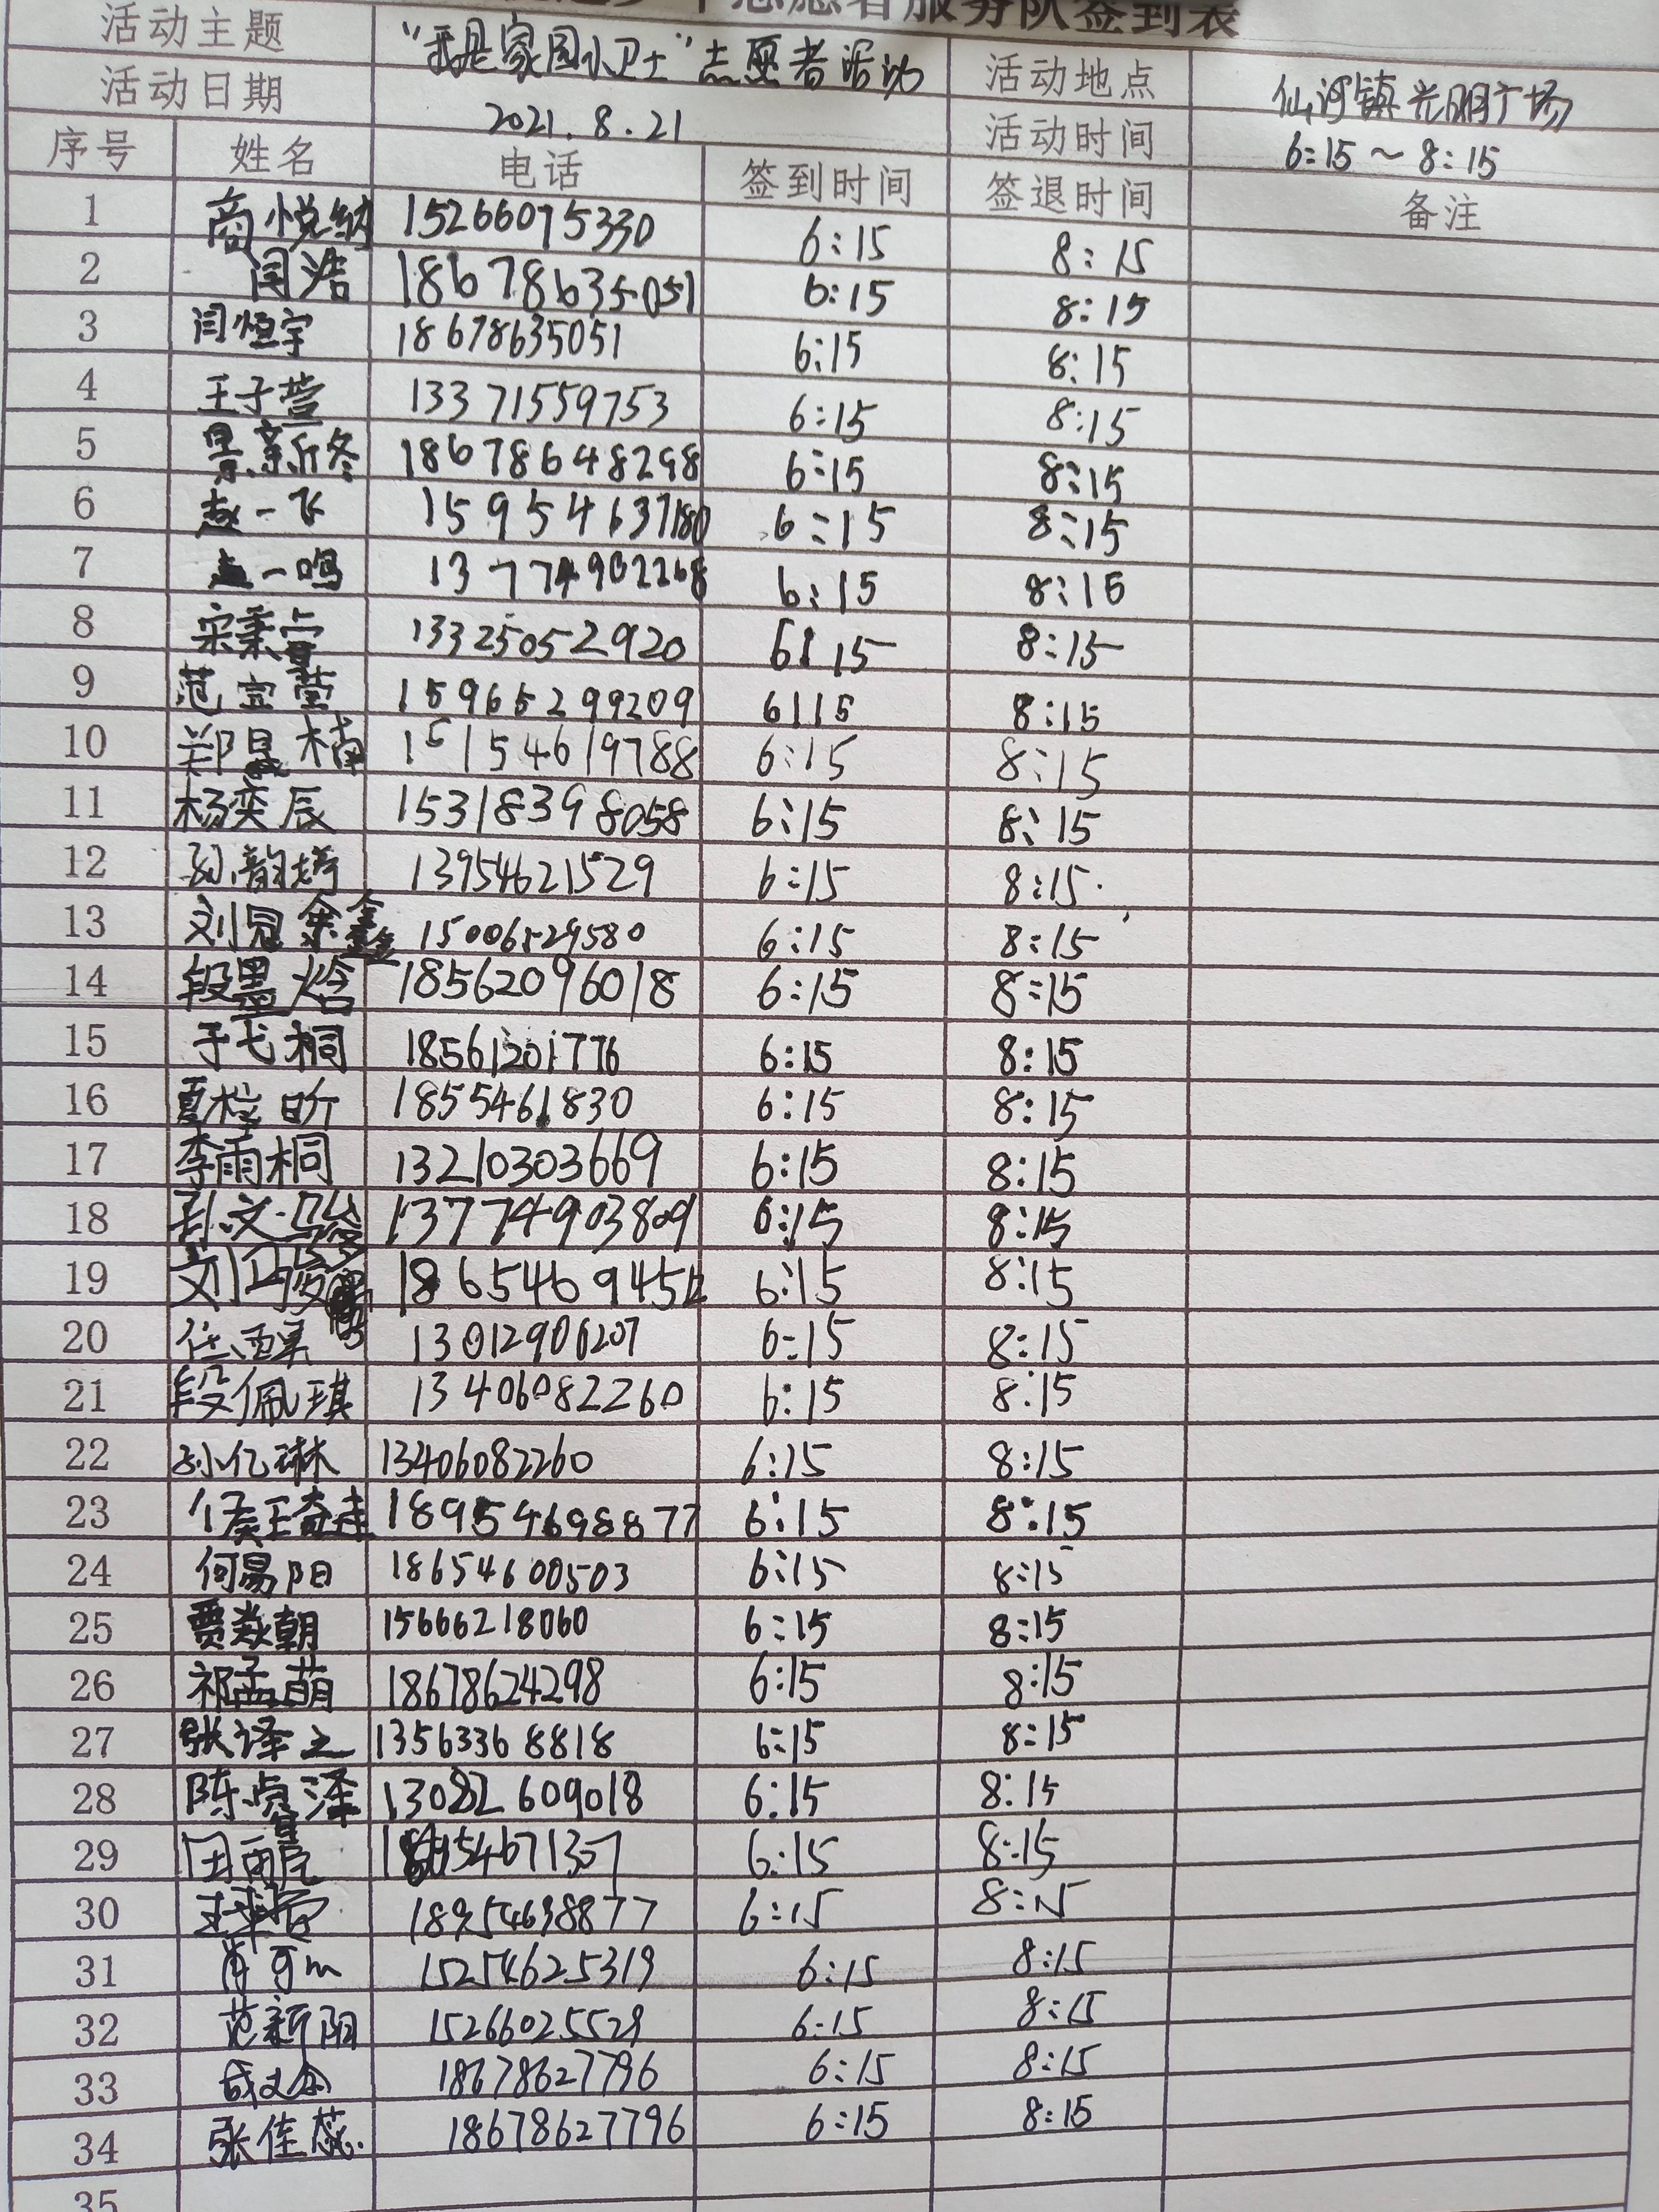 服务队签到表
活动主题 "我是家园小卫士"志愿者活动 活动地点 仙河镇光明广场
活动日期 2021.8.21 活动时间 6:15～8:15
序号 姓名 电话 签到时间 签退时间 备注
1 商悦纳 15266075330 6:15 8:15
2 闫浩 18678635051 6:15 8:15
3 闫恒宇 18678635051 6:15 8:15
4 王子萱 13371559753 6:15 8:15
5 景新冬 18678648298 6:15 8:15
6 赵一飞 15954637180 6:15 8:15
7 孟一鸣 13774902268 6:15 8:15
8 宋秉 13325052920 6:15 8:15
9 范宜萱 15965299209 6:15 8:15
10 郑晟楠 15154619788 6:15 8:15
11 杨奕辰 15318398058 6:15 8:15
12 孙韵婷 13954621529 6:15 8:15
13 刘冠余鑫 15006529580 6:15 8:15
14 段墨焓 18562096018 6:15 8:15
15 于弋桐 18561201776 6:15 8:15
16 夏梓昕 1855461830 6:15 8:15
17 李雨桐 13210303669 6:15 8:15
18 孙文骏 13774903809 6:15 8:15
19 刘 1865469451 6:15 8:15
20 任 13012906207 6:15 8:15
21 段佩琪 13406082260 6:15 8:15
22 孙亿琳 13406082260 6:15 8:15
23 侯王奇 18954698877 6:15 8:15
24 何易阳 18654600503 6:15 8:15
25 贾焱朝 15666218060 6:15 8:15
26 祁孟萌 18678624298 6:15 8:15
27 张译之 13563368818 6:15 8:15
28 陈贞泽 13082609018 6:15 8:15
29 田 6:15 8:15
30 18954698877 6:15 8:15
31 肖可 15254625319 6:15 8:15
32 范新阳 15266025529 6:15 8:15
33 成文 18678627796 6:15 8:15
34 张佳蕊 18678627796 6:15 8:15
35